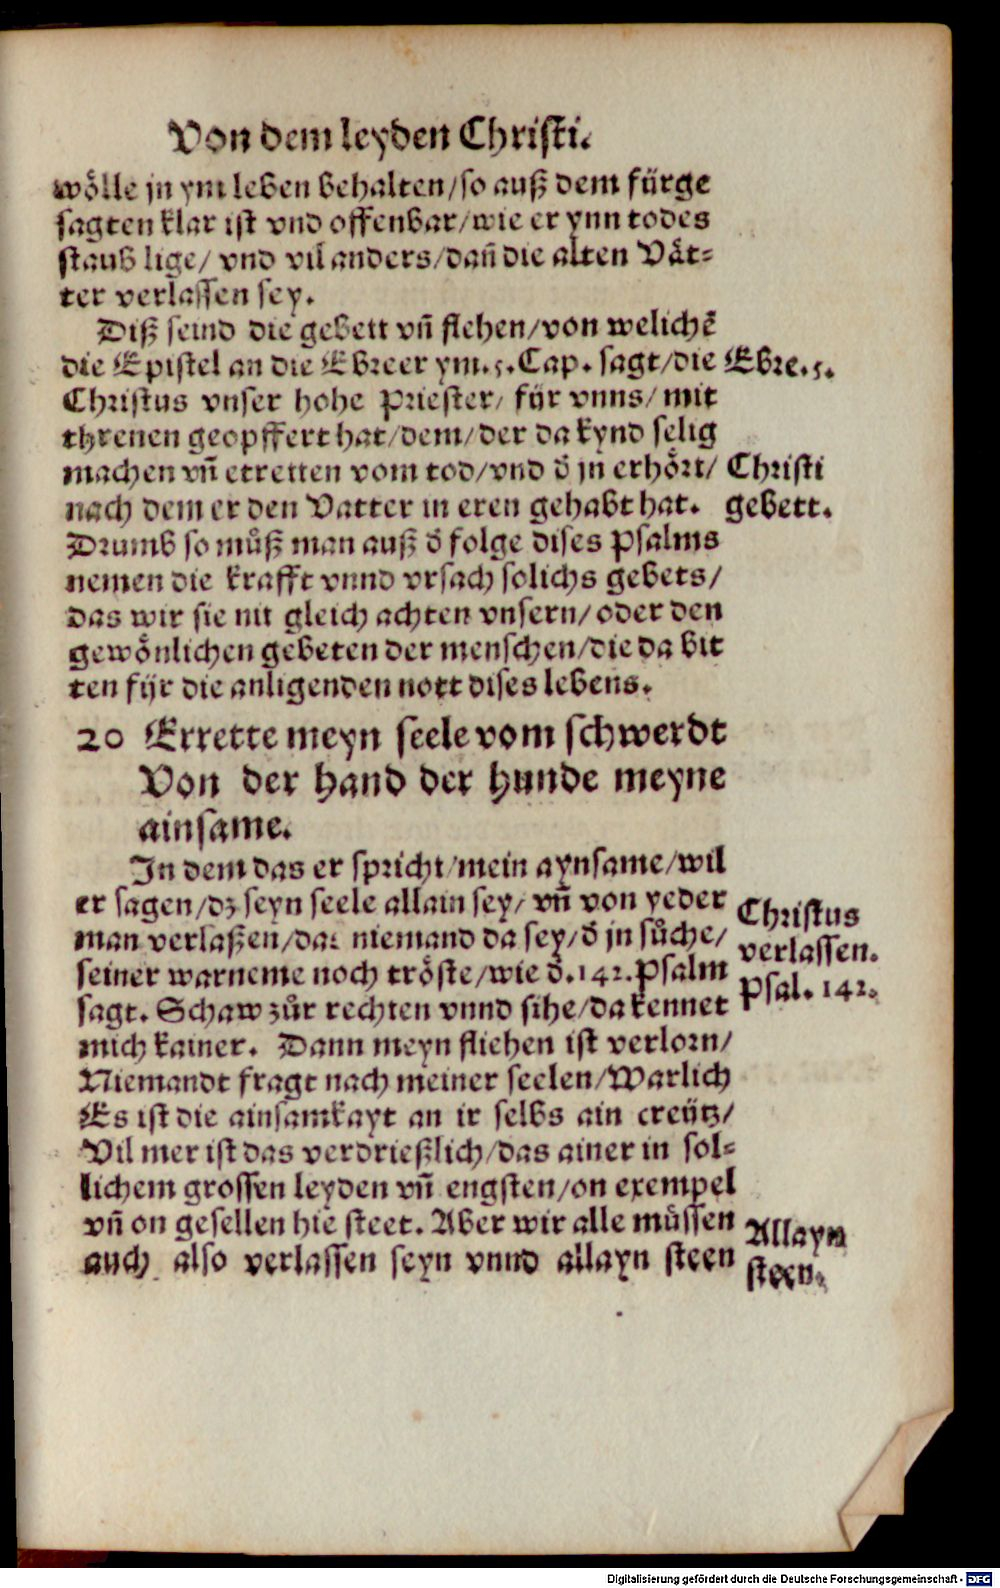 Von dem leyden Christi.
wölle jn ym leben behalten/so auß dem fürge
sagten klar ist vnd offenbar/wie er ynn todes
staub lige/ vnd vil anders/dañ die alten Vät⸗
ter verlassen sey.
Diß seind die gebett vñ flehen/von welichē
die Epistel an die Ebreer ym.5.Cap. sagt/die
Ebre.5.
Christus vnser hohe Priester/ für vnns/ mit
threnen geopffert hat/dem/der da kynd selig
machen vñ etretten vom tod/vnd d̓ jn erhört/
Christi
nach dem er den Vatter in eren gehabt hat.
gebett.
Drumb so můß man auß d̓ folge dises Psalms
nemen die krafft vnnd vrsach solichs gebets/
das wir sie nit gleich achten vnsern/ oder den
gewönlichen gebeten der menschen/die da bit
ten für die anligenden nott dises lebens.
20 Errette meyn seele vom schwerdt
Von der hand der hunde meyne
ainsame.
In dem das er spricht/mein aynsame/wil
er sagen/dz seyn seele allain sey/ vñ von yeder
Christus
man verlaßen/das niemand da sey/d̓ jn sůche/
verlassen.
seiner warneme noch tröste/wie d̓.142.Psalm
Psal. 142.
sagt. Schaw zůr rechten vnnd sihe/da kennet
mich kainer. Dann meyn fliehen ist verlorn/
Niemandt fragt nach meiner seelen/Warlich
Es ist die ainsamkayt an ir selbs ain creütz/
Vil mer ist das verdrießlich/das ainer in sol⸗
lichem grossen leyden vñ engsten/on exempel
vñ on gesellen hie steet. Aber wir alle müssen
Allayn
auch also verlassen seyn vnnd allayn steen
steen.
Digitalisierung gefördert durch die Deutsche Forschungsgemeinschaft - DFG